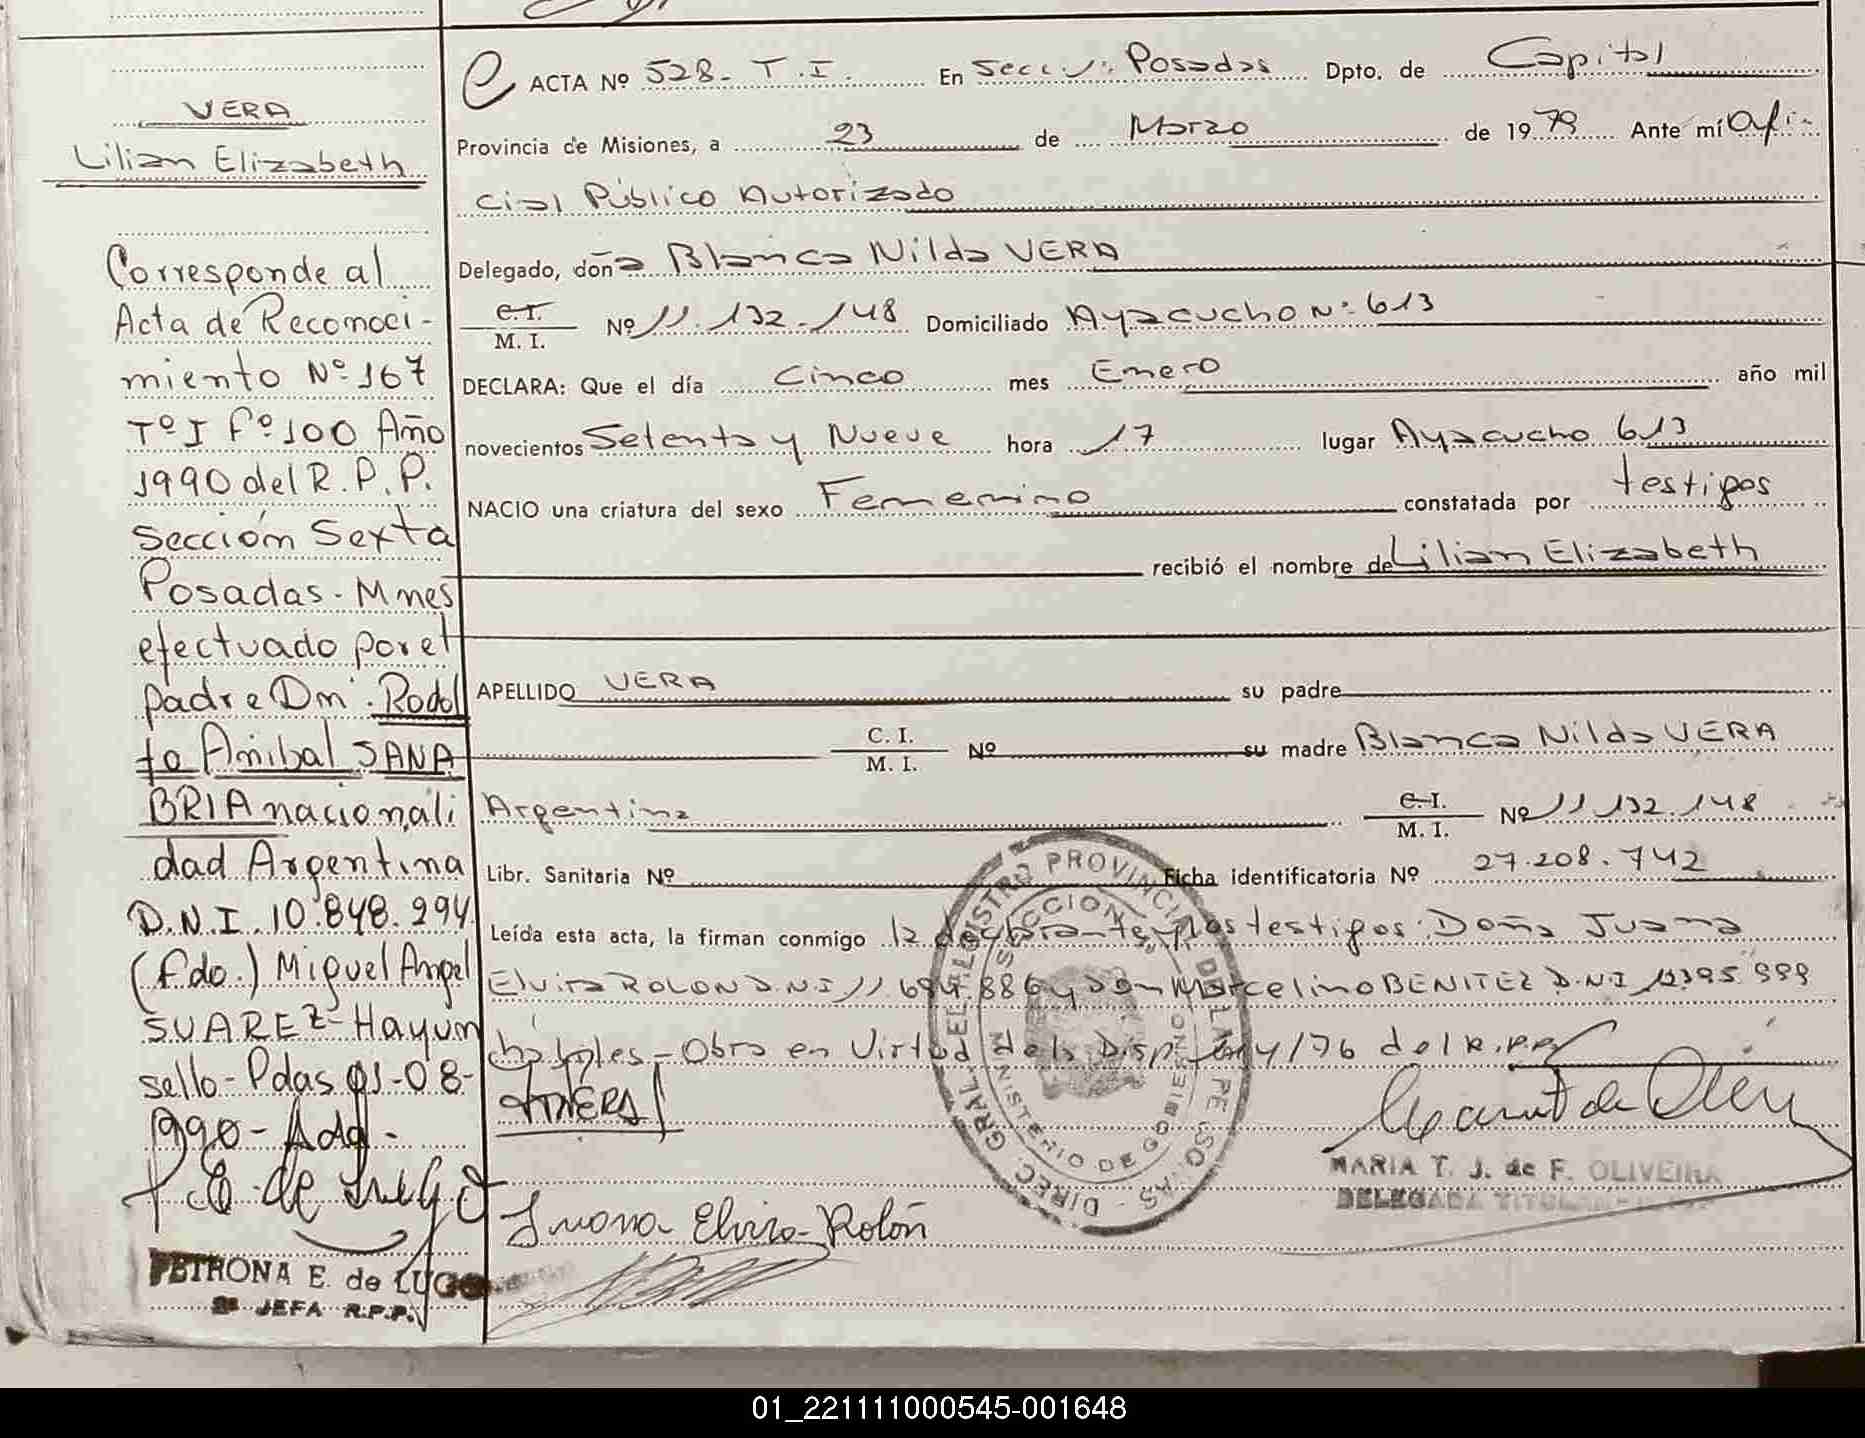 VERA
Lilian Elizabeth
Corresponde al
Acta de Reconoci-
miento Nº 167
Tº I Fº 100 Año
1990 del R.P.P.
Sección Sexta
Posadas - Mnes
efectuado por el
padre Dn. Rodol
fo Anibal SANA
BRIA nacionali
dad Argentina
D.N.I. 10.848.294
(fdo.) Miguel Angel
SUAREZ - Hay un
sello - Pdas 01-08-
1990 - Adg -
PETRONA E. de LUGO
2ª JEFA R.P.P.
ACTA Nº 528 - T.I. En Secc. Posadas Dpto. de Capital
Provincia de Misiones, a 23 de Marzo de 1979 Ante mí Ofi-
cial Público Autorizado
Delegado, doña Blanca Nilda VERA
C.I.
M. I. Nº 11.132.148 Domiciliado Ayacucho Nº 613
DECLARA: Que el día Cinco mes Enero año mil
novecientos Setenta y Nueve hora 17 lugar Ayacucho 613
NACIO una criatura del sexo Femenino constatada por testigos
recibió el nombre de Lilian Elizabeth
APELLIDO VERA su padre
C. I.
M. I. Nº su madre Blanca Nilda VERA
Argentina C.I.
M. I. Nº 11.132.148
Libr. Sanitaria Nº Ficha identificatoria Nº 27.208.742
Leída esta acta, la firman conmigo la declarante y los testigos: Doña Juana
Elvira ROLON D.N.I 11.694.886 y Don Marcelino BENITEZ D.N.I 12395.999
hábiles - Obra en Virtud de la Disp 4/76 del R.P.P
DIREC. GRAL. DEL REGISTRO PROVINCIAL DE LAS PERSONAS
SECCION
MINISTERIO DE GOBIERNO
MARIA T. J. de F. OLIVEIRA
DELEGADA TITULAR
Juana Elvira Rolón
01_221111000545-001648